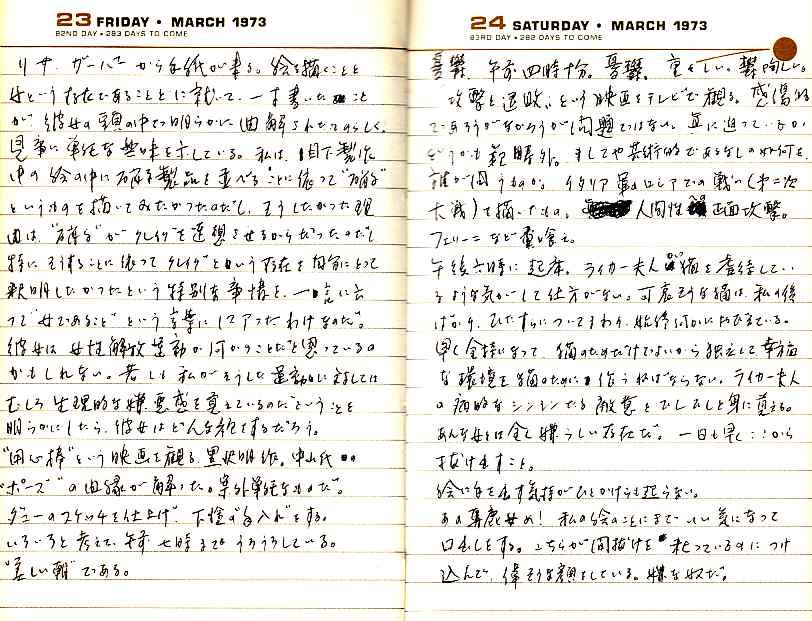 23 FRIDAY • MARCH 1973
82ND DAY • 283 DAYS TO COME
リサ ガーバーから手紙が来る。絵を描くことと
母という存在であることとに就いて、一寸書いたこと
が彼女の頭の中で明らかに曲解されたらしく
見事に単純な興味を示している。私は、目下製作
中の絵の中に 製品を並べることに依って
というものを描いてみたかったのだし、そうしたかった理
由は、 がクレイグを連想させるからだったのだし
特にそうすることに依ってクレイグという存在を自分にとって
釈明したかったという特別な事情を、一口に云
って“母であること”という言葉にしてアったわけなのだ。
彼女は女性解放運動か何かのことだと思っているの
かもしれない。若しも私がそうした運動に対しては
むしろ生理的な嫌悪感を覚えているのだということを
明らかにしたら、彼女はどんな顔をするだろう。
“用心棒”という映画を観る。黒沢明作。中山氏
“ポーズ”の由縁が解った。案外単純なものだ。
ダニーのスケッチを仕上げ、下絵の“手入れ”をする。
いろいろと考えて、午前七時までうろうろしている。
“美しい朝”である。
24 SATURDAY • MARCH 1973
83RD DAY • 282 DAYS TO COME
憂鬱。午前四時十分。憂鬱。重々しい。鬱陶しい。
“攻撃と退敗”という映画をテレビで観る。感傷的
であろうがなかろうが問題ではない。真に迫っているか
どうかも範疇外。ましてや芸術的であるなしの如何を
誰が問うものか。イタリア軍のロシアでの戦い(第二次
大戦)を描いたもの。人間性への正面攻撃。
フェリーニなど糞喰え。
午後六時に起床。ライカー夫人が猫を虐待してい
るような気がして仕方がない。可哀そうな猫は、私の後
ばかり、ひたすらについてまわり、始終何かにおびえている。
早く金持になって、猫のためだけでよいから独立して幸福
な環境を猫のために作らねばならない。ライカー夫人
の病的なシンシンたる敵意をひしひしと身に覚える。
あんな女は全く嫌らしい存在だ。一日も早くここから
抜け出すこと。
絵に手を出す気持がひとかけらも起らない。
あの馬鹿女め!私の絵のことにまでいい気になって
口出しをする。こちらが間抜けを粧っているのにつけ
込んで、偉そうな顔をしている。嫌な奴だ。